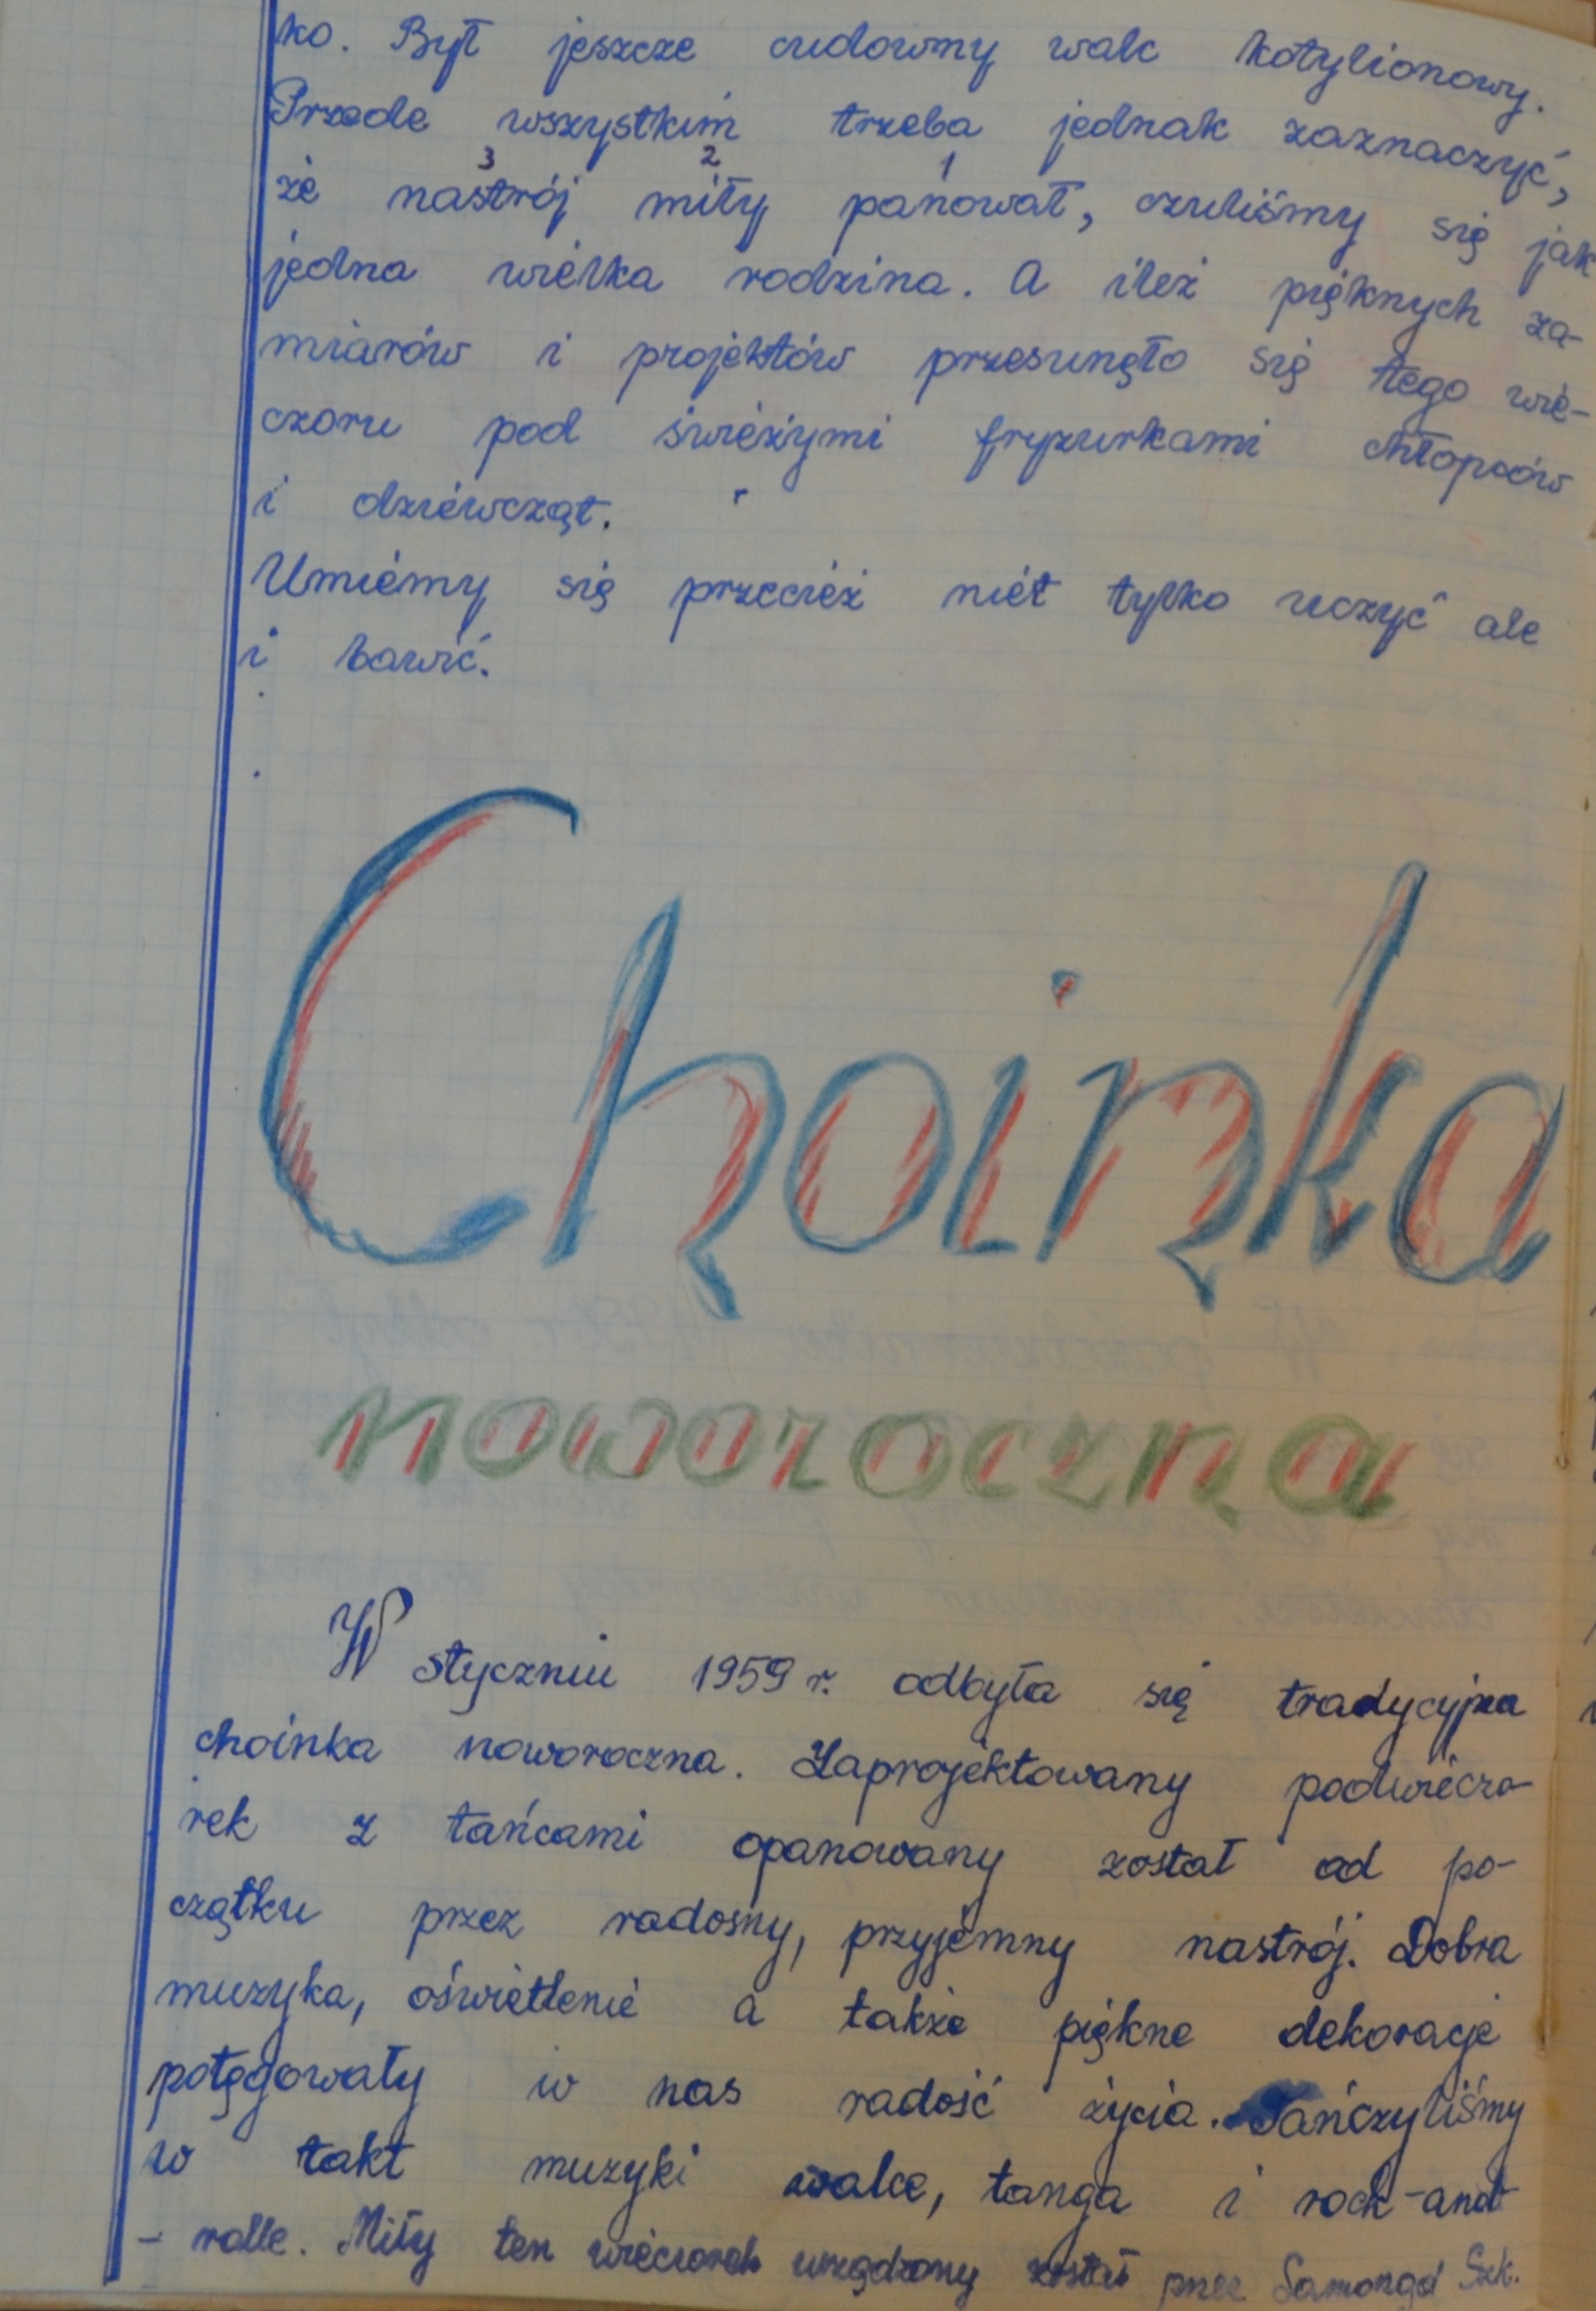 ko. Był jeszcze cudowny walc kotylionowy.
Przede wszystkim trzeba jednak zaznaczyć,
3 2 1
że nastrój miły panował, czuliśmy się jak
jedna wielka rodzina. A ileż pięknych za-
miarów i projektów przesunęło się tego wie-
czoru pod świeżymi fryzurkami chłopców
i dziewcząt.
Umiemy się przecież niet tylko uczyć ale
i bawić.
Choinka
noworoczna
W styczniu 1959 r. odbyła się tradycyjna
choinka noworoczna. Zaprojektowany podwieczo-
rek z tańcami opanowany został od po-
czątku przez radosny, przyjemny nastrój. Dobra
muzyka, oświetlenie a także piękne dekoracje
potęgowały w nas radość życia. Tańczyliśmy
w takt muzyki walce, tanga i rock-and-
- rolle. Miły ten wieczorek urządzony został przez Samorząd Szk.